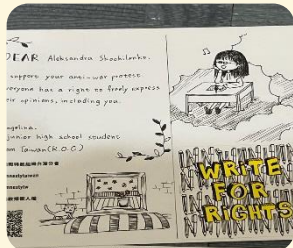 DEAR Aleksandra Skochilenko.
support your anti-war protest.
veryone has a right to freely express
ir opinions, including you.
ngelina.
junior high school student
om Taiwan (R.O.C)
mnestytaiwan
WRITE
FOR
RIGHTS